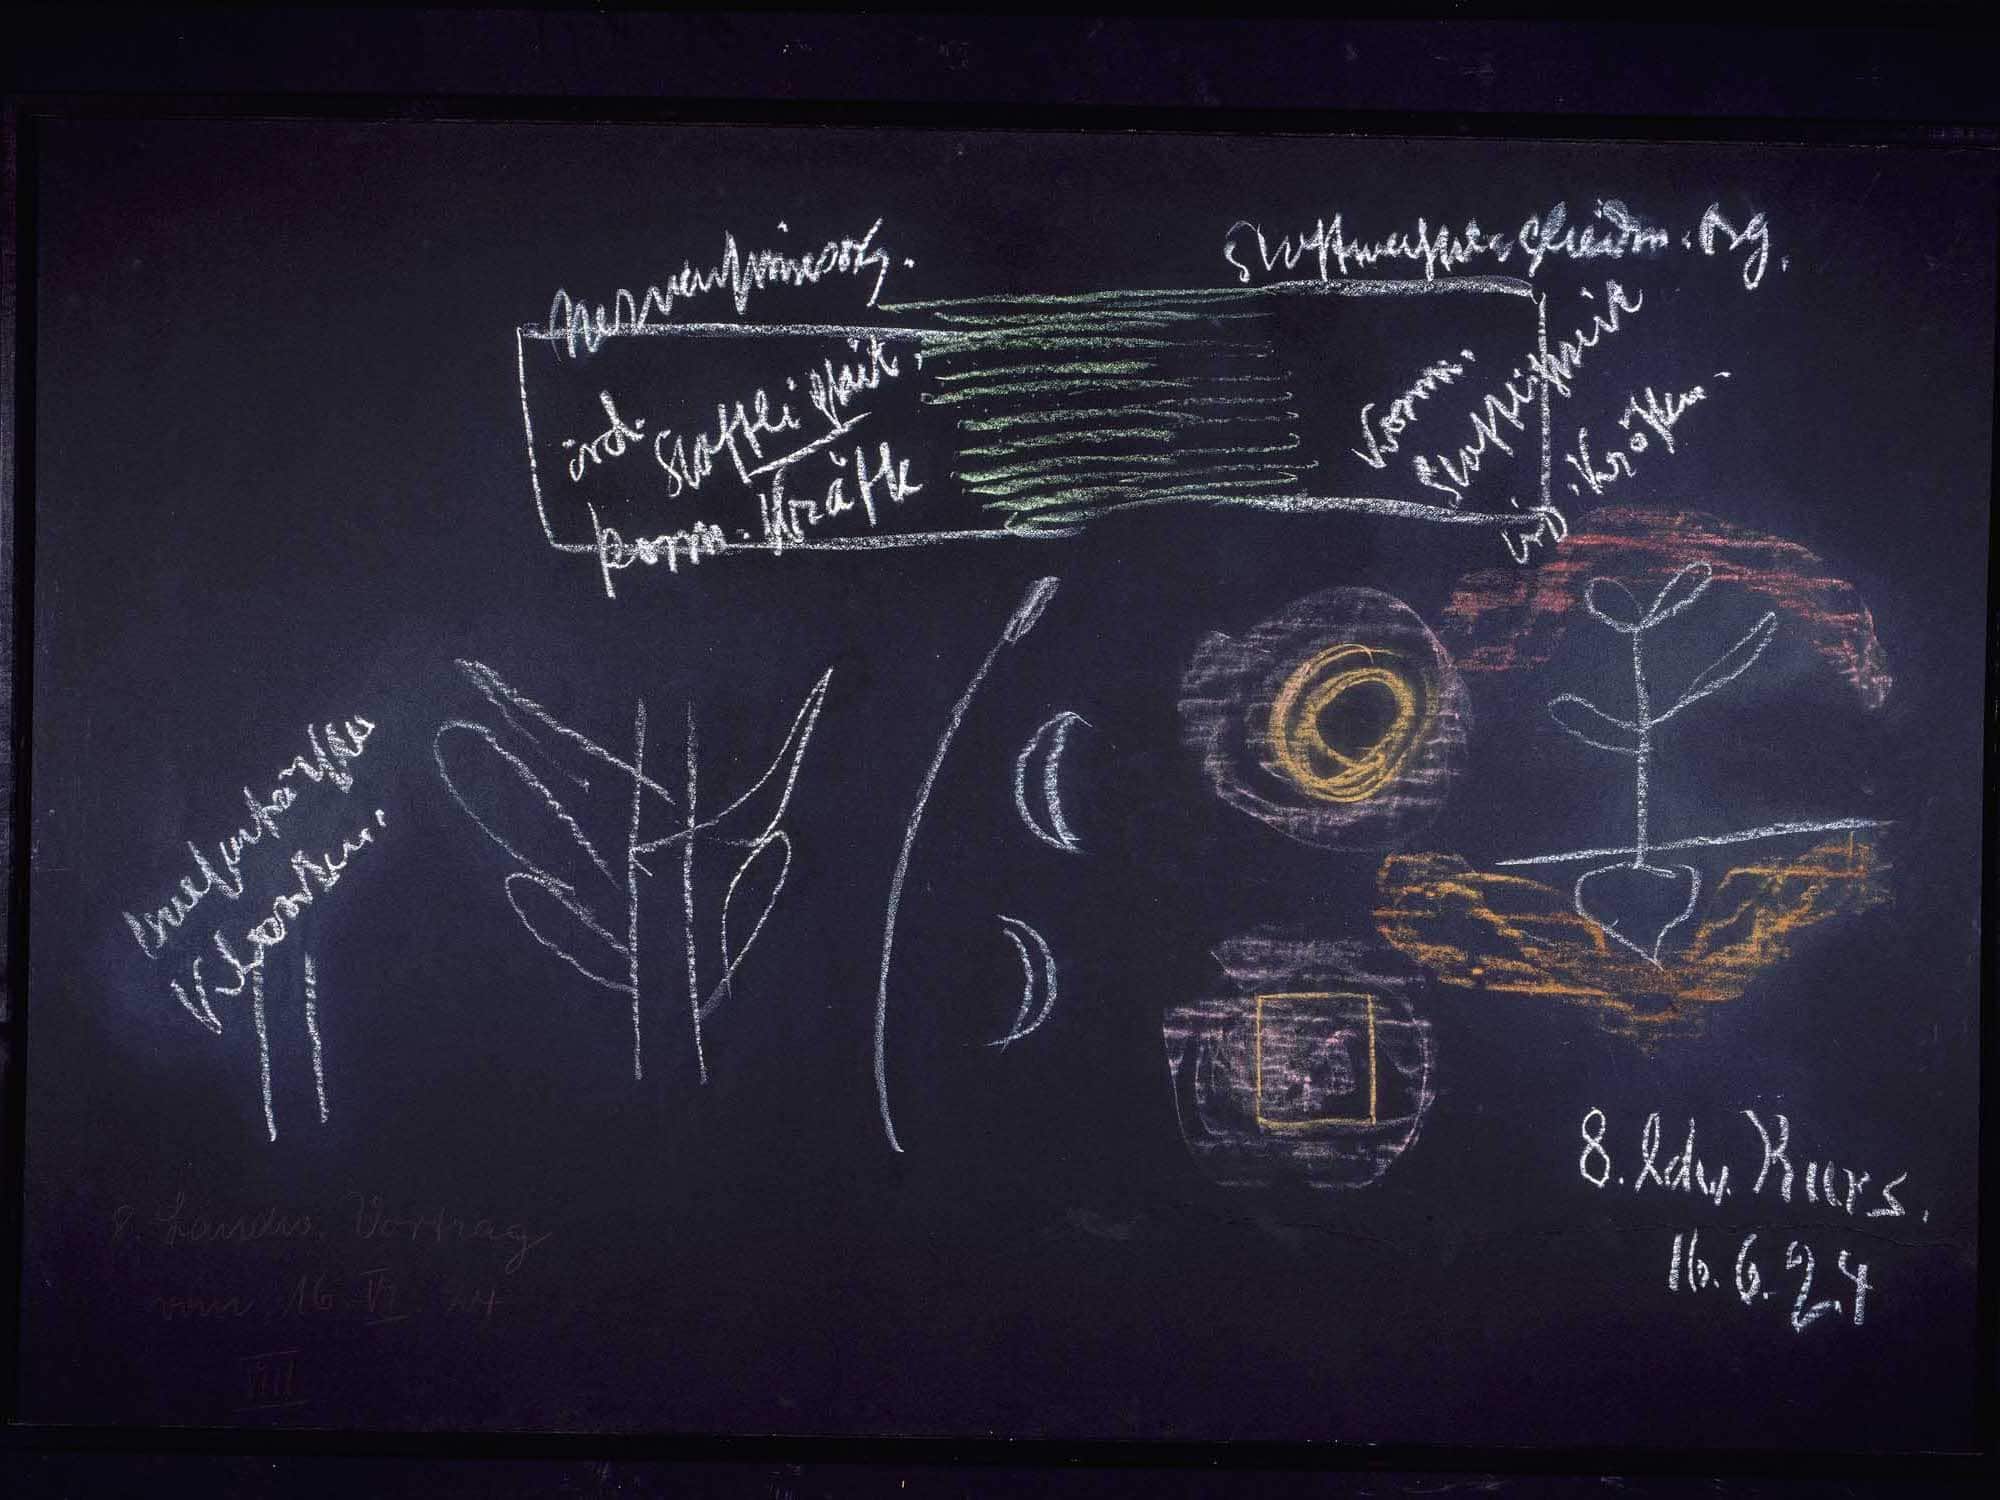 Nervensinnesorg.
Stoffwechsel-Gliedm. Org.
ird. Stofflichkeit.
kosm. Kräfte
kosm. Stofflichkeit
ird. Kräften.
8. Ldw. Kurs.
16. 6. 24
8. Landw. Vortrag
vom 16. VI. 24
VIII